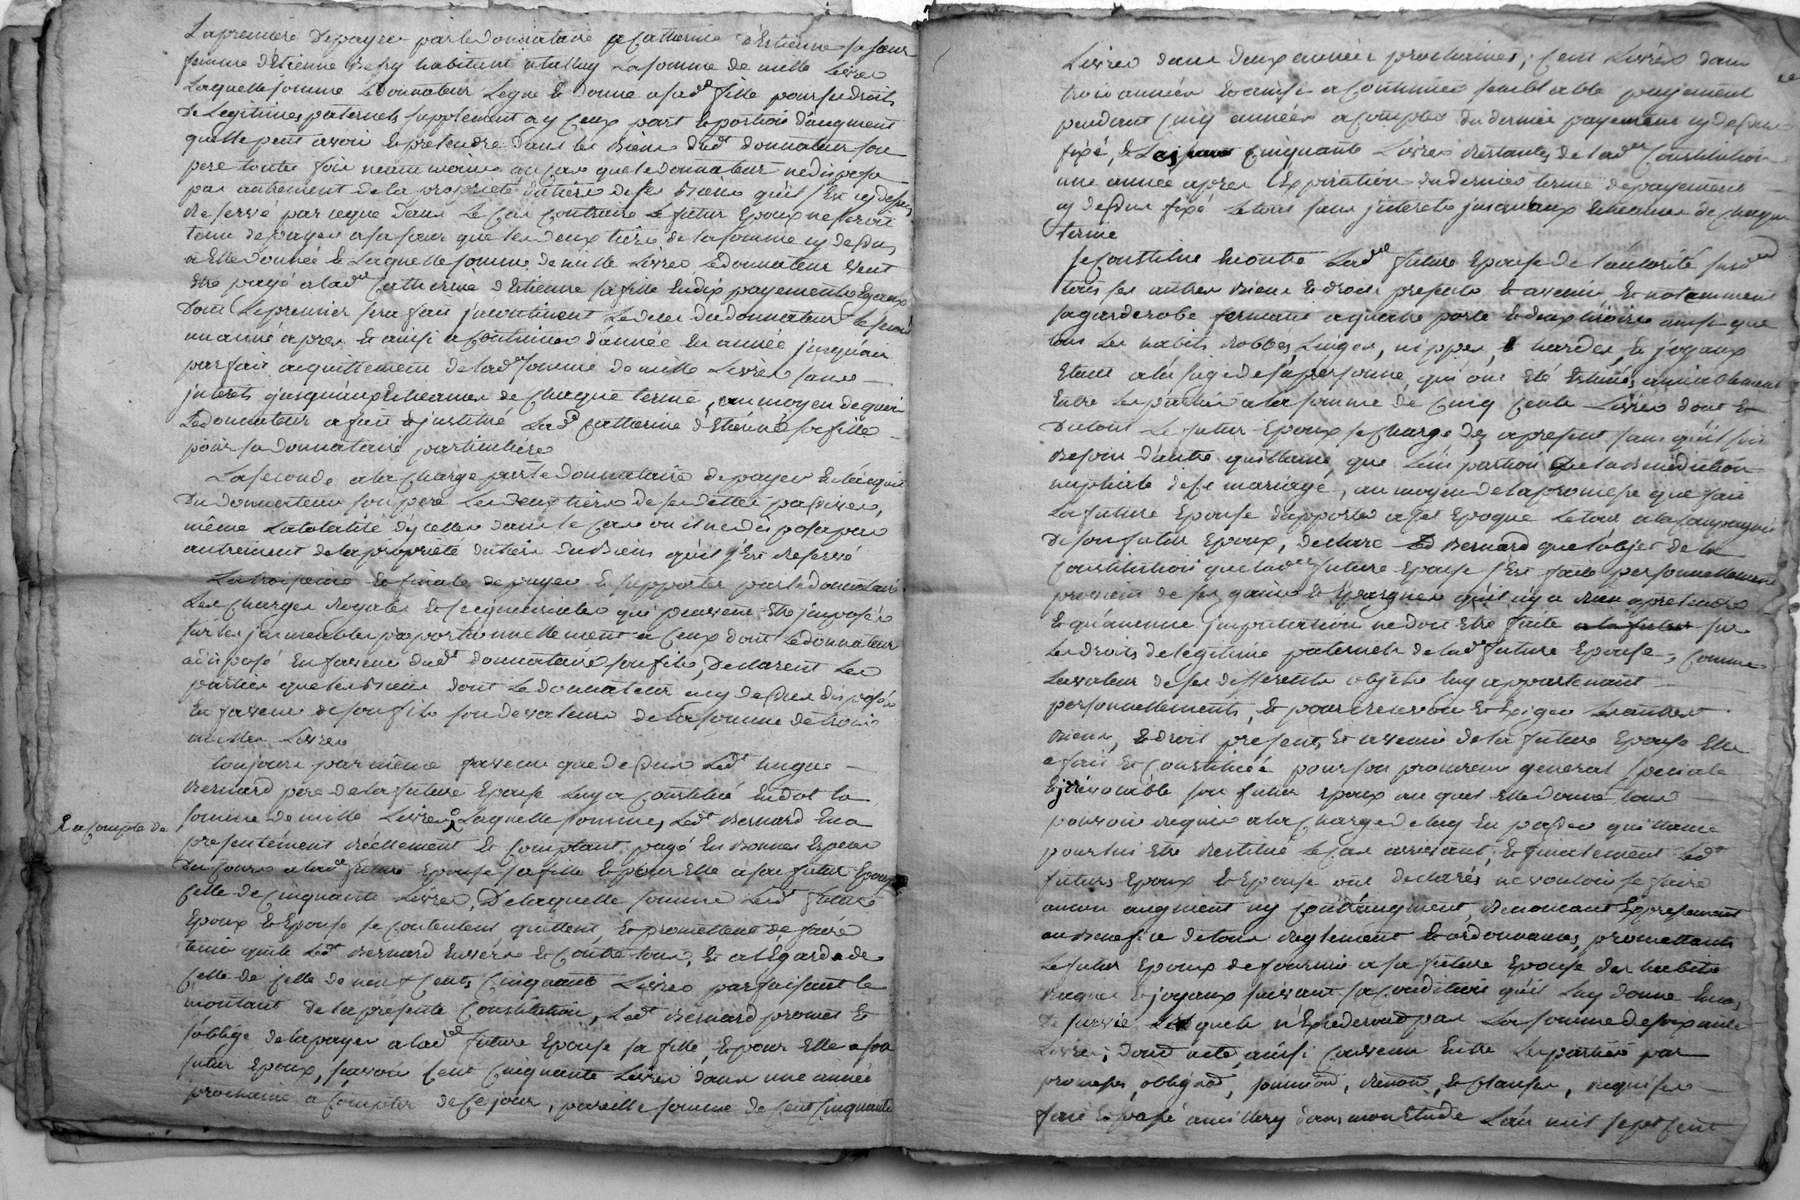 La premiere de payer par le donnataire a Catherine d'Estienne sa sœur
femme d'Etienne habitant a la somme de mille Livres
Laquelle somme Le donnateur Legue et donne a sad.e fille pour ses droits
De Legitimes paternels supplement a yceux part et portion d'augment
quelle peut avoir et pretendre dans les Biens dud.t donnateur son
pere toutes fois neanmoins au cas que le donnateur ne dispose
pas autrement de la proprieté du tiers de ses Biens qu'il s'est cy dessus
Reservé parceque dans Le Cas Contraire Le futur Epoux ne seroit
tenu de payer a sa sœur que les deux tiers de la somme cy dessus
a Elle donnée et Laquelle somme de mille Livres Le donnateur veut
Etre payé a lad.e Catherine d'Etienne sa fille En dix payements Egaux
Dont Le premier sera fait incontinent Le deces du donnateur le second
un anné apres et ainsi a Continuer d'année En année jusqu'au
parfait acquittement de lad.e somme de mille Livres sans
interets jusqu'aux Echeances de Chaque terme, au moyen de quoi
Le donnateur a fait et justitué Lad.e Catherine d'Etienne sa fille
pour sa donnataire particuliere
La seconde a la Charge par le donnataire de payer En l'acquit
Du donnateur son pere Les deux tiers de ses dettes passives,
même La totalité d'ycelles dans le Cas ou il ne disposa pas
autrement de la proprieté du tiers du Biens qu'il s'est Reservé
La troisieme et finale de payer et supporter par le donnataire
Les Charges Royales et seigneuriales qui peuvent Etre imposés
sur les immeubles proportionnellement a Ceux dont Le donnateur
a disposé En faveur dud.t donnataire son fils, Declarent Les
parties que les Biens dont Le donnateur a cy dessus disposé
En faveur de son fils son de valeur de la somme de trois
milles Livres
Toujours par même faveur que dessus Led.t hugue
Bernard pere de la future Epouse Luy a Constitué En dot la
somme de mille Livres, Laquelle somme, Led.t Bernard En a
Et a Compte de
presentément réellement et Comptant payé En Bonnes Especes
Du Cours a lad.e future Epouse sa fille et pour Elle a son futur Epoux
Celle de Cinquante Livres, De laquelle somme Led.t futur
Epoux et Epouse se Contentent quittent et promettent de faire
tenir quitte Led.t Bernard Envers et Contre tous, Et a l'Egard de
Celle de Celle de neuf Cents Cinquante Livres parfaisant le
montant de la présente Constitution, Led.t Bernard promet et
s'obblige de la payer a lad.e future Epouse sa fille, et pour Elle a son
futur Epoux, sçavoir Cent Cinquante Livres dans une année
prochaine a Compter de Ce jour, pareille somme de Cent Cinquante
Livres dans deux années prochaines, Cent Livres dans
trois années et ainsi a Continuer semblable payement
pendant Cinq années a Compter du dernier payement cy dessus
fixé, et Les Cinquante Livres Restantes de lad.e Constitution
une année apres l'Expiration du dernier terme de payement
cy dessus fixé Le tout sans jnterets jusqu'aux Echeances de Chaque
terme
se Constitue Enoutre Lad.e future Epouse de l'autorité susd.
tous ses autres Biens et droits presents et avenir Et notamment
sa garderobe fermante a quatre porte et deux tiroirs ainsi que
tous Les habits Robbes, Linges, nippes, hardes, et joyaux
Etant a lusage de sa personne, qui ont été Estimés amiablement
Entre Les parties a la somme de Cinq Cents Livres dont Et
Du tout Le futur Epoux se Charge des apresent sans qu'il soit
Besoin d'autre quittance, que L'impartion De la Bénédiction
nuptiale de Ce mariage, au moyen de la promesse que fait
La future Epouse d'apporter a Cet Epoque Le tout a la Compagnie
De son futur Epoux, Declare Led. Bernard que l'objet de la
Constitution que lad.e future Epouse s'est faite personnellement
provient de ses gains et Epargnes qu'il n'y a Rien a pretendre
Et qu'aucune jmputation ne doit Etre faite sur
Les droits de legitime paternels de lad.e future Epouse, Comme
La valeur de ses differents objets luy appartenant
personnellements, Et pour Recevoir et Exiger Les autres
Biens, et droit presents Et avenir de la future Epouse Elle
a fait Et Constitué pour son procureur general special
Et jrrévocable son futur Epoux au quel Elle donne tout
pouvoir Requis a la Charge de luy En passer quittance
pour lui Etre Restitué le Cas arrivant, Et finalement Led.
futurs Epoux et Epouse ont declarés ne vouloir se faire
aucun augment ny Contraugment, Renoncant Expressement
au Benefice de tous Reglement et ordonnances, promettants
Le futur Epoux de fournir a sa future Epouse des habits
Bagues et joyaux suivant sa Condition qu'il luy donne En cas
de survie Lesquels n'Excederont pas La somme de soixante
Livres; dont acte, ainsi Convenu Entre Les parties par
promesses, obligaõ, soumissõ, Renonõ, et Clauses, Requises
fait et passé dans mon Etude L'an mil sept Cent